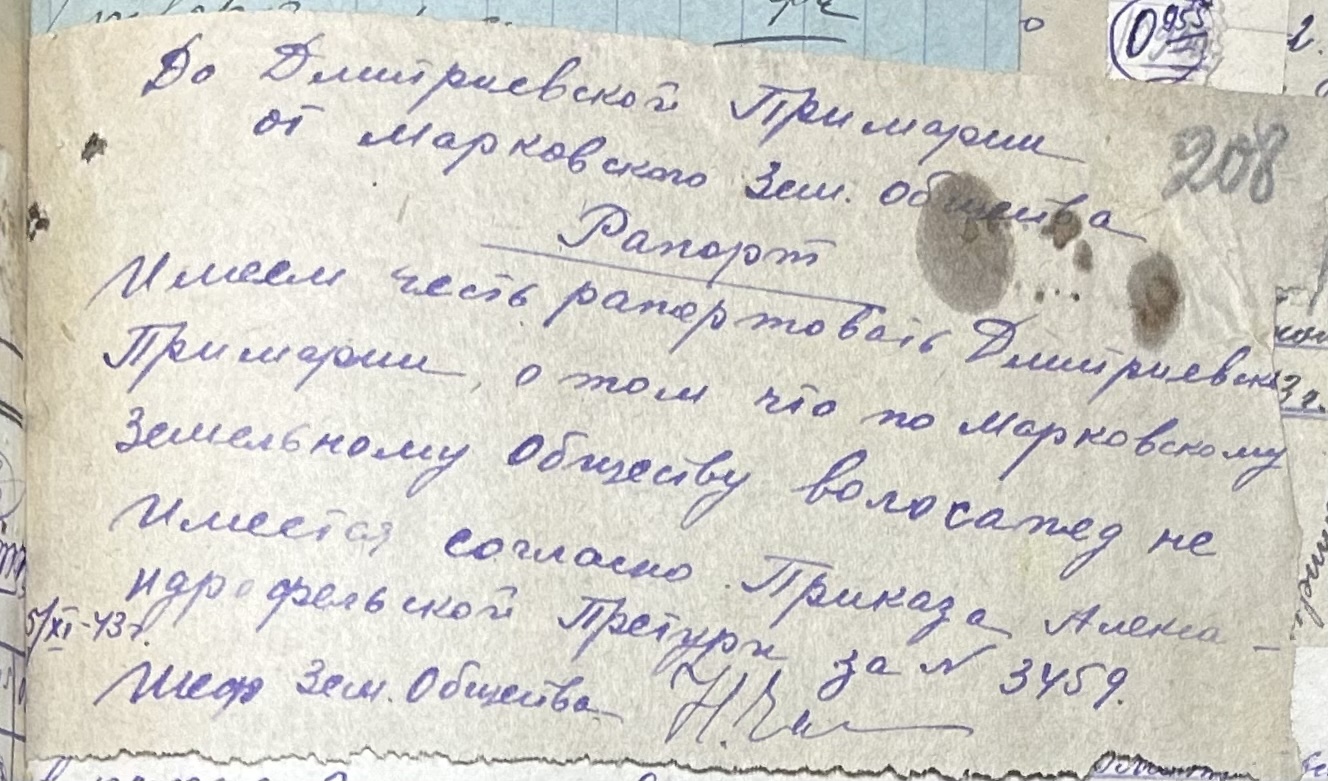 0955
208
До Дмитриевской Примарии
от Марковского Зем. Общества
Рапорт
Имеем честь рапортовать Дмитриевской
Примарии, о том что по Марковскому
Земельному Обществу волосапед не
Имеется согласно Приказа Алекса-
ндрофельской Претуры за № 3459.
5/XI-43г.
Шеф Зем. Общества